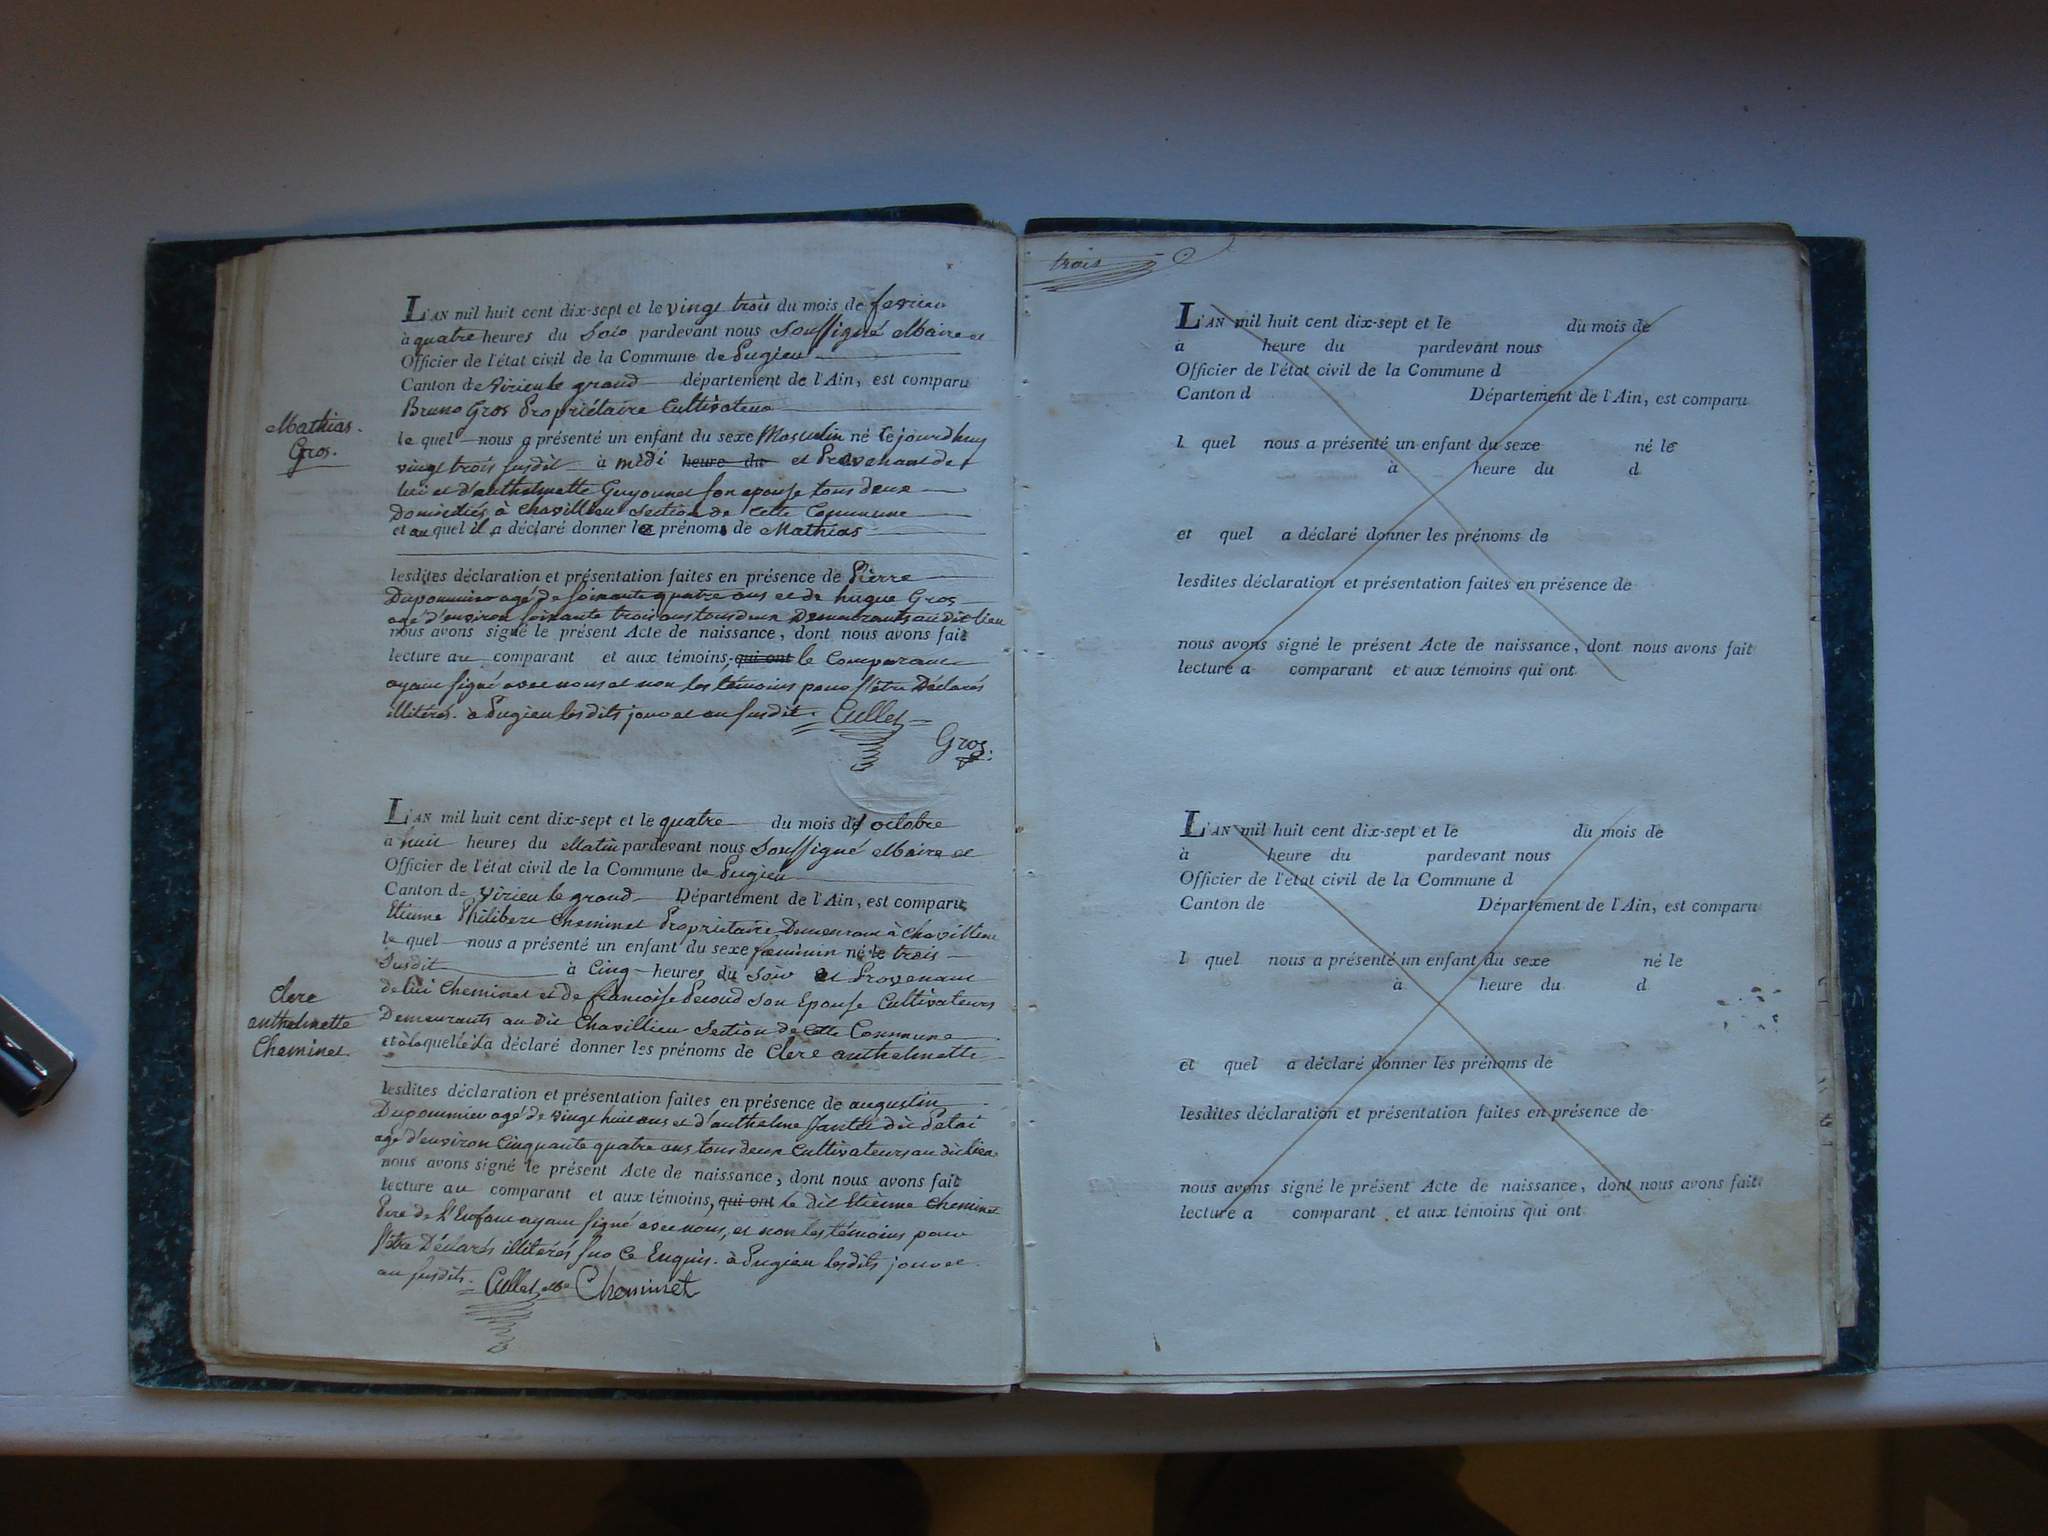 L'AN mil huit cent dix-sept et le vingt trois du mois de fevrier
à quatre heures du Soir pardevant nous Soussigné Maire et
Officier de l'état civil de la Commune de Pugieu
Canton de Virieu le grand département de l'Ain, est comparu
Bruno Gros Propriétaire Cultivateur
Mathias
Gros.
le quel nous a présenté un enfant du sexe Masculin né cejourdhuy
vingt trois susdit à midi heure du et Provenant de
lui et d'anthelmette Guyonnet son epouse tous deux
Domiciliés à Chavillieu Section de Cette Commune
et au quel il a déclaré donner le prénom de Mathias
lesdites déclaration et présentation faites en présence de Pierre
Dupommier agé de soixante quatre ans et de hugue Gros
agé d'environ soixante trois ans tous deux Demeurants au dit lieu
nous avons signé le présent Acte de naissance, dont nous avons fait
lecture au comparant et aux témoins, qui ont le Comparant
ayant signé avec nous et non les témoins pour s'être Déclarés
illitérés. à Pugieu les dits jour et an susdit. Cullet
Gros.
L'AN mil huit cent dix-sept et le quatre du mois d'octobre
à huit heures du Matin pardevant nous Soussigné Maire et
Officier de l'état civil de la Commune de Pugieu
Canton de Virieu le grand Département de l'Ain, est comparu
Etienne Philibert Cheminet Propriétaire Demeurant à Chavillieu
le quel nous a présenté un enfant du sexe féminin né le trois
Susdit à Cinq heures du Soir et Provenant
Clere
anthelmette
Cheminet.
de lui Cheminet et de francoise Peroud Son Epouse Cultivateurs
Demeurants au dit Chavillieu Section de Cette Commune
et à laquelle il a déclaré donner les prénoms de Clere anthelmette
lesdites déclaration et présentation faites en présence de augustin
Dupommier agé de vingt huit ans et d'anthelme Jantet dit
agé d'environ Cinquante quatre ans tous deux Cultivateurs au dit lieu
nous avons signé le présent Acte de naissance, dont nous avons fait
lecture au comparant et aux témoins, qui ont le dit Etienne Cheminet
Pere de l'Enfant ayant signé avec nous, et non les témoins pour
s'être Déclarés illitérés sur Ce Enquis. à Pugieu lesdits jour et
an susdits. Cullet Cheminet
trois
L'AN mil huit cent dix-sept et le du mois de
à heure du pardevant nous
Officier de l'état civil de la Commune d
Canton d Département de l'Ain, est comparu
l quel nous a présenté un enfant du sexe né le
à heure du d
et quel a déclaré donner les prénoms de
lesdites déclaration et présentation faites en présence de
nous avons signé le présent Acte de naissance, dont nous avons fait
lecture a comparant et aux témoins qui ont
L'AN mil huit cent dix-sept et le du mois de
à heure du pardevant nous
Officier de l'état civil de la Commune d
Canton de Département de l'Ain, est comparu
l quel nous a présenté un enfant du sexe né le
à heure du d
et quel a déclaré donner les prénoms de
lesdites déclaration et présentation faites en présence de
nous avons signé le présent Acte de naissance, dont nous avons fait
lecture a comparant et aux témoins qui ont